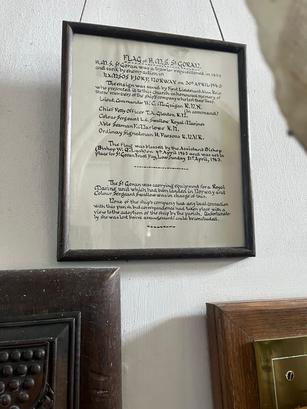 FLAG of H.M.S. St GORAN.
H.M.S. St Goran was a
and sunk by enemy action in
NAMSOS FJORD, NORWAY on 30th APRIL 1940
The ensign was saved by First Lieutenant
who presented it to this church in honoured memory of
those members of the ship's company who lost their lives
Lieut. Commander W. C. McGuigan R.N.R.
(In command)
Chief Petty Officer T.A. R.N.
Colour Sergeant L.C. Swallow Royal Marines
Able Seaman K. Marlowe R.N.
Ordinary Signalman H. Parsons R.N.V.R.
The Flag was blessed by the Assistant Bishop
(Bishop W. Q. Lash) on 9th April 1963 and was set in
place for St Goran Feast Day, Low Sunday, 21st April, 1963.
The St Goran was carrying equipment for a Royal
Marine unit which had been landed in Norway and
Colour Sergeant Swallow was in charge of this.
None of the ship's company had any local connection
with this parish, but correspondence had taken place with a
view to the adoption of the ship by the parish. Unfortunate-
ly she was lost before arrangements could be concluded.